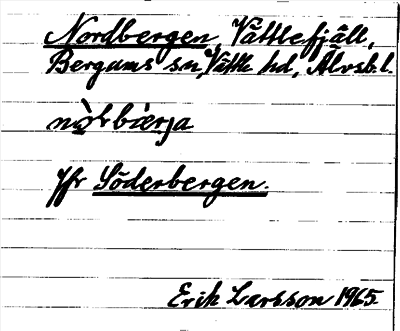 Nordbergen, Vättlefjäll,
Bergums sn, Vättle hd, Älvsb. l.
nòrbæ̀rja
Jfr Söderbergen.
Erik Larsson 1965.